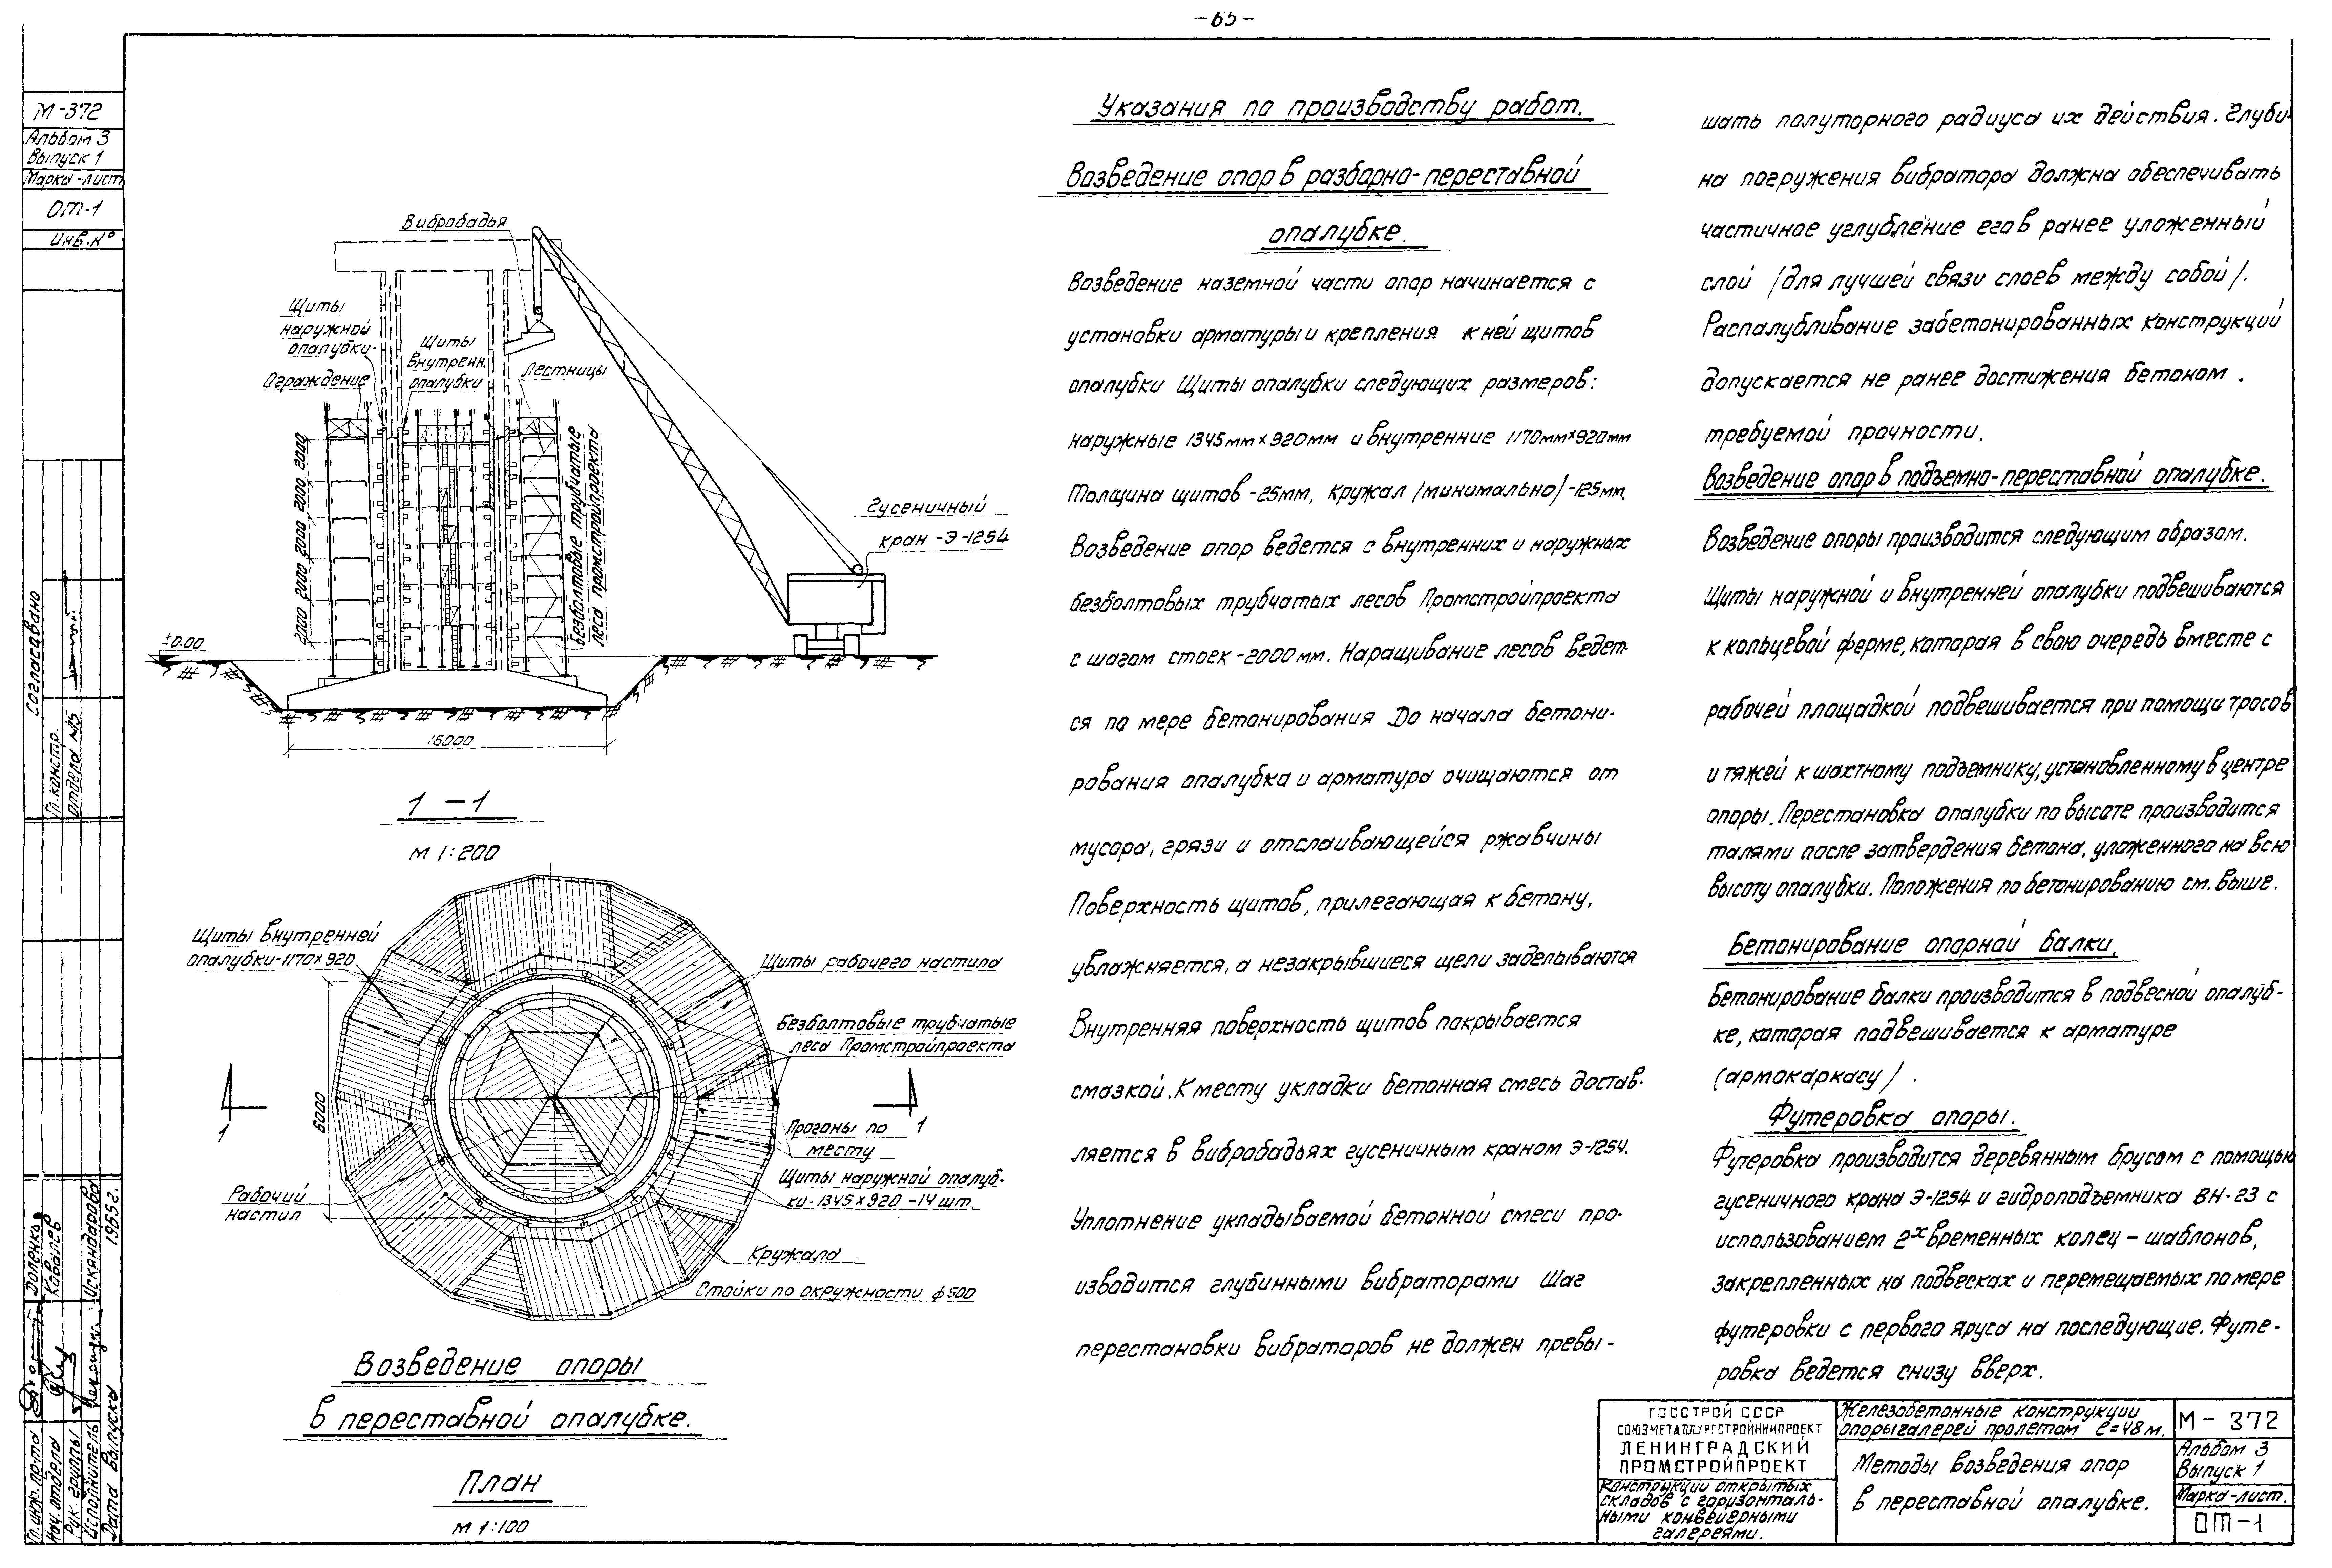 -65-
М-372
Альбом 3
Выпуск 1
Марка-лист
ОТ-1
Инв.№
Согласовано
Гл. констр.
отдела №5
Гл. инж. пр-та
Нач. отдела
Рук. группы
Исполнитель
Дата выпуска
Доленко
Ковалев
Искандарова
1965г.
Вибробадья
Щиты
наружной
опалубки
Щиты
внутренн.
опалубки
Ограждение
Лестницы
2000 2000 2000 2000 2000
Безболтовые трубчатые
леса промстройпроекта
Гусеничный
кран-Э-1254
±0.00
16000
1-1
М 1:200
Щиты внутренней
опалубки-1170×920
Щиты рабочего настила
Безболтовые трубчатые
леса Промстройпроекта
6000
1
1
Прогоны по
месту
Щиты наружной опалуб-
ки-1345×920-14 шт.
Рабочий
настил
Кружала
Стойки по окружности ф500
Возведение опоры
в переставной опалубке.
План
М 1:100
Указания по производству работ.
Возведение опор в разборно-переставной
опалубке.
Возведение наземной части опор начинается с
установки арматуры и крепления к ней щитов
опалубки Щиты опалубки следующих размеров:
наружные 1345мм×920мм и внутренние 1170мм×920мм
Толщина щитов-25мм, кружал /минимально/-125мм.
Возведение опор ведется с внутренних и наружных
безболтовых трубчатых лесов Промстройпроекта
с шагом стоек-2000мм. Наращивание лесов ведет-
ся по мере бетонирования До начала бетони-
рования опалубка и арматура очищаются от
мусора, грязи и отслаивающейся ржавчины
Поверхность щитов, прилегающая к бетону,
увлажняется, а незакрывшиеся щели заделываются
Внутренняя поверхность щитов покрывается
смазкой. К месту укладки бетонная смесь достав-
ляется в вибробадьях гусеничным краном Э-1254.
Уплотнение укладываемой бетонной смеси про-
изводится глубинными вибраторами Шаг
перестановки вибраторов не должен превы-
шать полуторного радиуса их действия. Глуби-
на погружения вибратора должна обеспечивать
частичное углубление его в ранее уложенный
слой /для лучшей связи слоев между собой/.
Распалубливание забетонированных конструкций
допускается не ранее достижения бетоном.
требуемой прочности.
Возведение опор в подъемно-переставной опалубке.
Возведение опоры производится следующим образом.
Щиты наружной и внутренней опалубки подвешиваются
к кольцевой ферме, которая в свою очередь вместе с
рабочей площадкой подвешивается при помощи тросов
и тяжей к шахтному подъемнику, установленному в центре
опоры. Перестановка опалубки по высоте производится
талями после затвердения бетона, уложенного на всю
высоту опалубки. Положения по бетонированию см. выше.
Бетонирование опорной балки.
Бетонирование балки производится в подвесной опалуб-
ке, которая подвешивается к арматуре
(армокаркасу).
Футеровка опоры.
Футеровка производится деревянным брусом с помощью
гусеничного крана Э-1254 и гидроподъемника ВН-23 с
использованием 2х временных колец-шаблонов,
закрепленных на подвесках и перемещаемых по мере
футеровки с первого яруса на последующие. Футе-
ровка ведется снизу вверх.
ГОССТРОЙ СССР
СОЮЗМЕТАЛЛУРГСТРОЙНИИПРОЕКТ
ЛЕНИНГРАДСКИЙ
ПРОМСТРОЙПРОЕКТ
Конструкции открытых
складов с горизонталь-
ными конвейерными
галереями.
Железобетонные конструкции
опоры галерей пролетом ℓ=48м.
Методы возведения опор
в переставной опалубке.
М-372
Альбом 3
Выпуск 1
Марка-лист.
ОТ-1